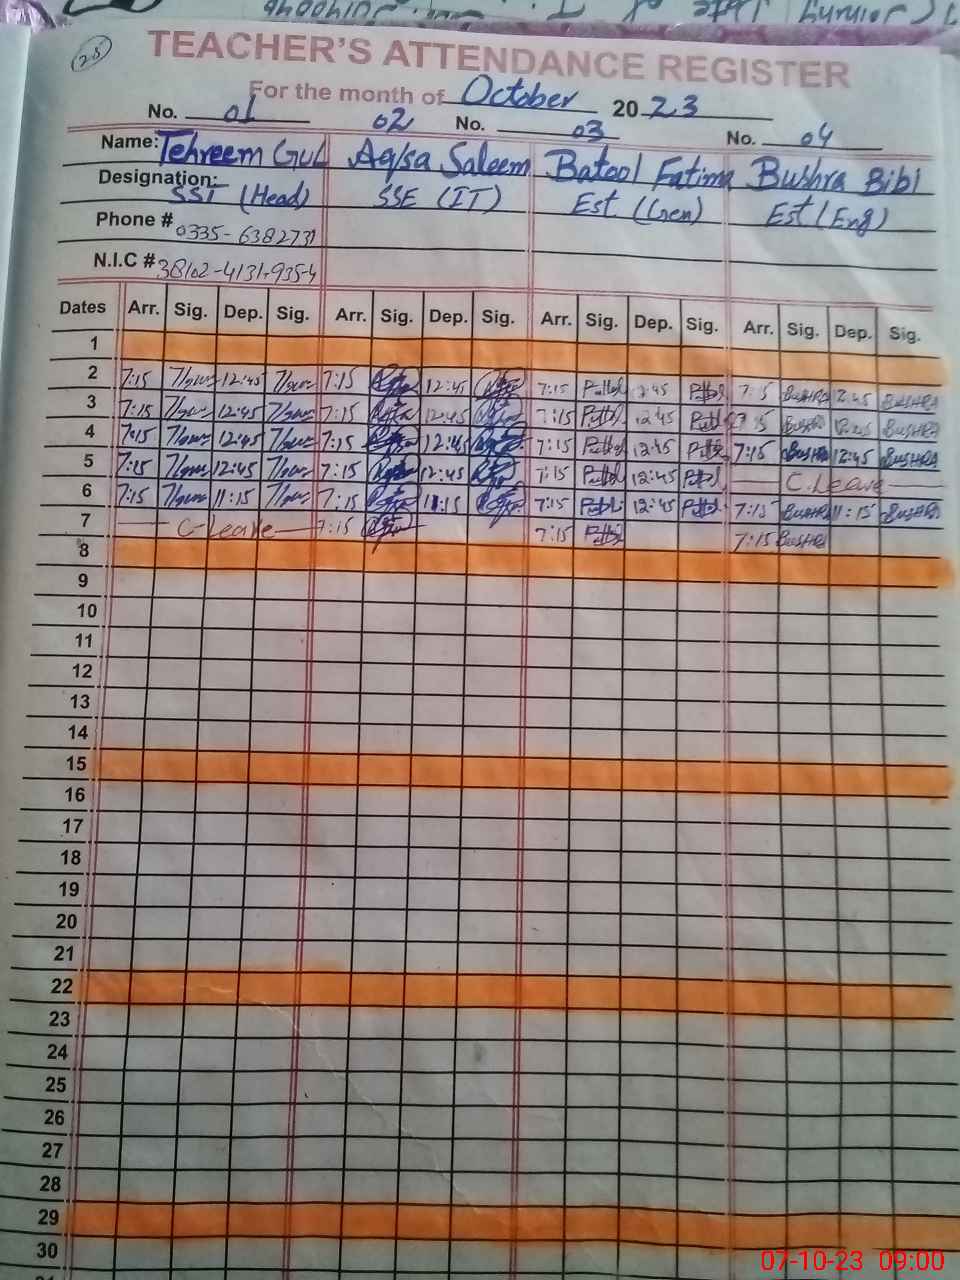 28
TEACHER'S ATTENDANCE REGISTER
For the month of October 2023
No. 01 02 No. 03 No. 04
Name: Tehreem Gul Aqsa Saleem Batool Fatima Bushra Bibi
Designation: SST (Head) SSE (IT) Est. (Gen) Est. (Eng)
Phone # 0335-6382731
N.I.C #
Dates Arr. Sig. Dep. Sig. Arr. Sig. Dep. Sig. Arr. Sig. Dep. Sig. Arr. Sig. Dep. Sig.
1
2 7:15 12:45 7:15 12:45 7:15 12:45 7:15 BUSHRA 12:45 BUSHRA
3 7:15 12:45 7:15 12:45 7:15 12:45 7:15 BUSHRA 12:45 BUSHRA
4 7:15 12:45 7:15 12:45 7:15 12:45 7:15 BUSHRA 12:45 BUSHRA
5 7:15 12:45 7:15 12:45 7:15 12:45 C.Leave
6 7:15 11:15 7:15 11:15 7:15 12:45 7:15 BUSHRA 11:15 BUSHRA
7 C-Leave 7:15 7:15 7:15 BUSHRA
8
9
10
11
12
13
14
15
16
17
18
19
20
21
22
23
24
25
26
27
28
29
30
07-10-23 09:00